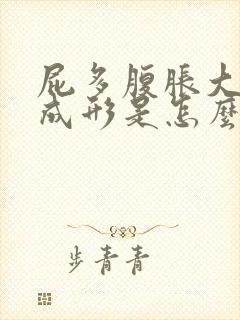 屁多腹脹大
成形是怎麼
步青青